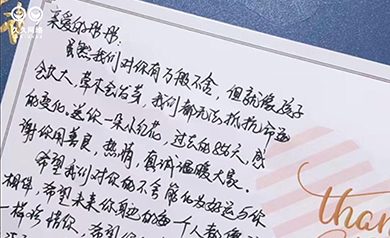 亲爱的彤彤:
虽然我们对你有万般不舍，但就像孩子
会长大，草木会发芽，我们都无法抵抗命运
的变化。送你一朵小红花，过去的886天，感
谢你用善良，热情，真诚温暖大家。
希望我们对你的不舍能化为好运与你
相伴，希望未来你身边的每一个人都像我们
一样珍惜你，希望你
thank